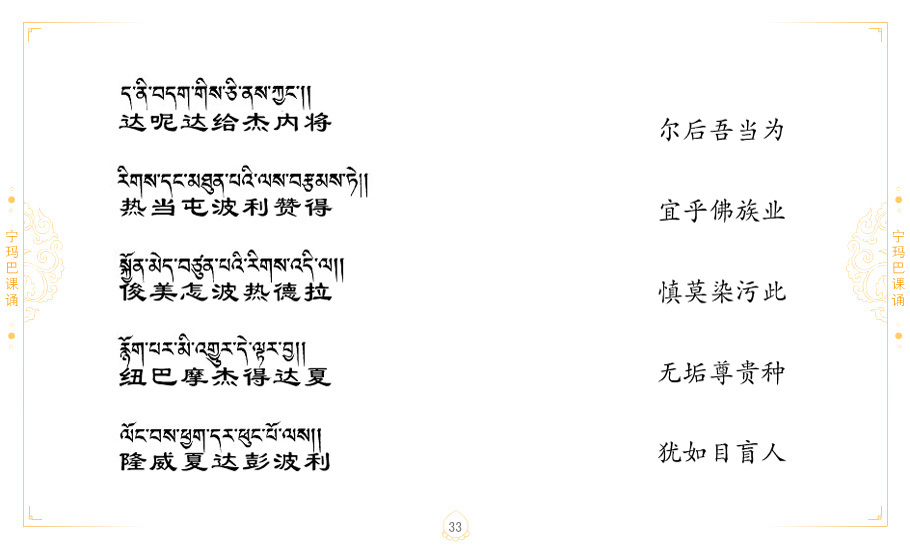 ད་ནི་བདག་གིས་ཅི་ནས་ཀྱང་།།
达呢达给杰内将
尔后吾当为
རིགས་དང་མཐུན་པའི་ལས་བརྩམས་ཏེ།།
热当屯波利赞得
宜乎佛族业
སྐྱོན་མེད་བཙུན་པའི་རིགས་འདི་ལ།།
俊美怎波热德拉
慎莫染污此
རྙོག་པར་མི་འགྱུར་དེ་ལྟར་བྱ།།
纽巴摩杰得达夏
无垢尊贵种
ལོང་བས་ཕྱག་དར་ཕུང་པོ་ལས།།
隆威夏达彭波利
犹如目盲人
宁玛巴课诵
宁玛巴课诵
33